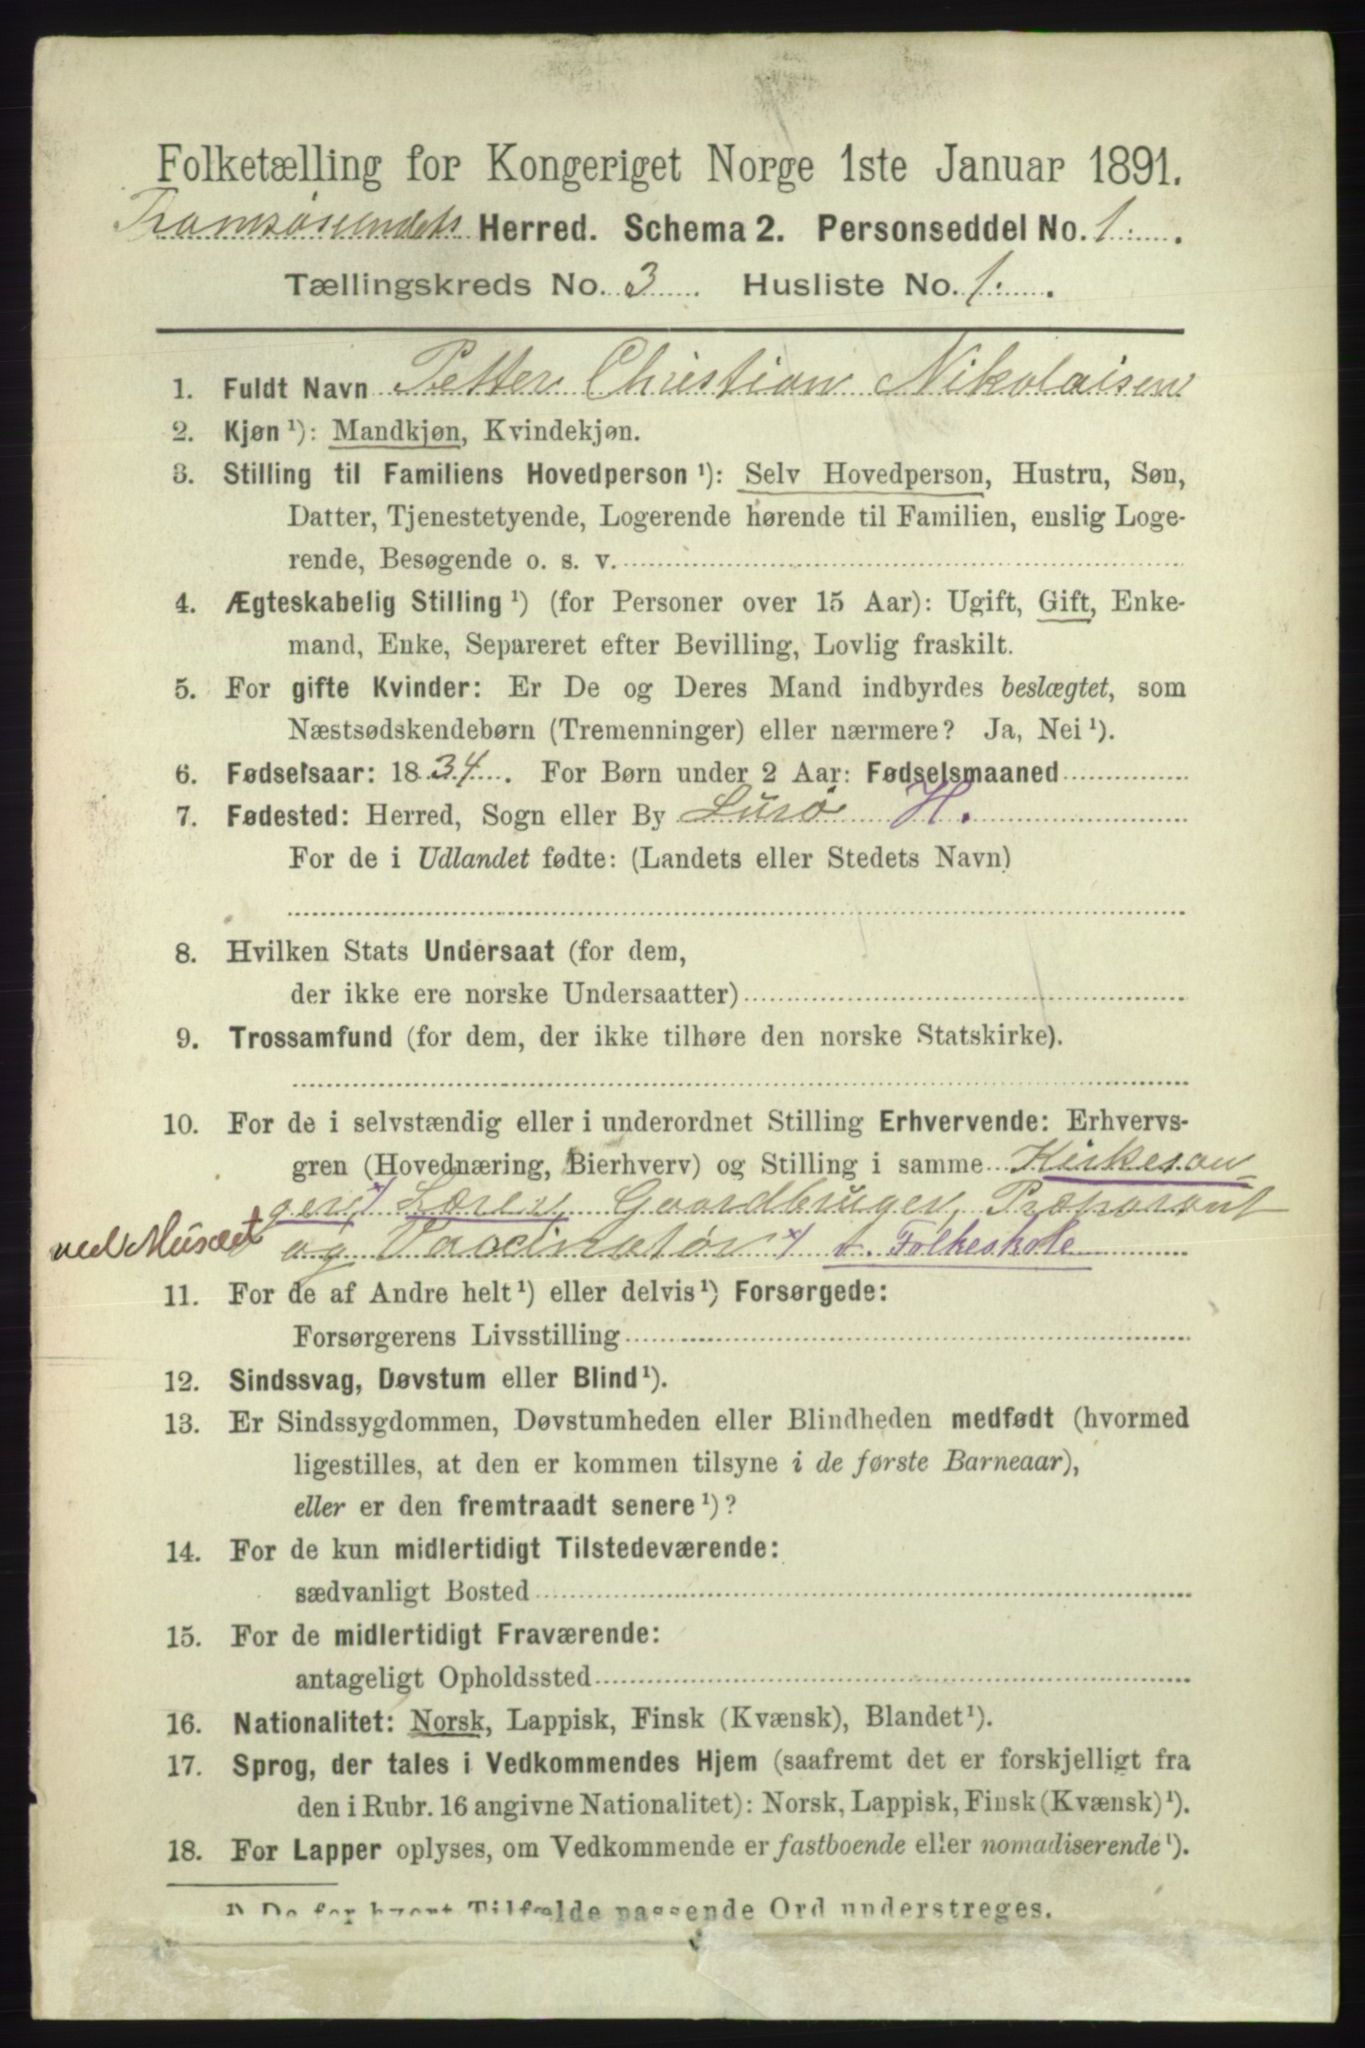 Folketælling for Kongeriget Norge 1ste Januar 1891.
Tromsøsundets Herred. Schema 2. Personseddel No. 1.
Tællingskreds No. 3 Husliste No. 1.
1. Fuldt Navn Petter Christian Nikolaisen
2. Kjøn ¹): Mandkjøn, Kvindekjøn.
3. Stilling til Familiens Hovedperson ¹): Selv Hovedperson, Hustru, Søn,
Datter, Tjenestetyende, Logerende hørende til Familien, enslig Loge-
rende, Besøgende o. s. v.
4. Ægteskabelig Stilling ¹) (for Personer over 15 Aar): Ugift, Gift, Enke-
mand, Enke, Separeret efter Bevilling, Lovlig fraskilt.
5. For gifte Kvinder: Er De og Deres Mand indbyrdes beslægtet, som
Næstsødskendebørn (Tremenninger) eller nærmere? Ja, Nei ¹).
6. Fødselsaar: 1834. For Børn under 2 Aar: Fødselsmaaned
7. Fødested: Herred, Sogn eller By Lurø H.
For de i Udlandet fødte: (Landets eller Stedets Navn)
8. Hvilken Stats Undersaat (for dem,
der ikke ere norske Undersaatter)
9. Trossamfund (for dem, der ikke tilhøre den norske Statskirke).
10. For de i selvstændig eller i underordnet Stilling Erhvervende: Erhvervs-
gren (Hovednæring, Bierhverv) og Stilling i samme Kirkesan-
ger, x) Lærer, Gaardbruger, Præparant
ved Musæet og Vaccinatør x) v. Folkeskole
11. For de af Andre helt ¹) eller delvis ¹) Forsørgede:
Forsørgerens Livsstilling
12. Sindssvag, Døvstum eller Blind ¹).
13. Er Sindssygdommen, Døvstumheden eller Blindheden medfødt (hvormed
ligestilles, at den er kommen tilsyne i de første Barneaar),
eller er den fremtraadt senere ¹)?
14. For de kun midlertidigt Tilstedeværende:
sædvanligt Bosted
15. For de midlertidigt Fraværende:
antageligt Opholdssted
16. Nationalitet: Norsk, Lappisk, Finsk (Kvænsk), Blandet ¹).
17. Sprog, der tales i Vedkommendes Hjem (saafremt det er forskjelligt fra
den i Rubr. 16 angivne Nationalitet): Norsk, Lappisk, Finsk (Kvænsk) ¹).
18. For Lapper oplyses, om Vedkommende er fastboende eller nomadiserende ¹).
¹) De for hvert Tilfælde passende Ord understreges.